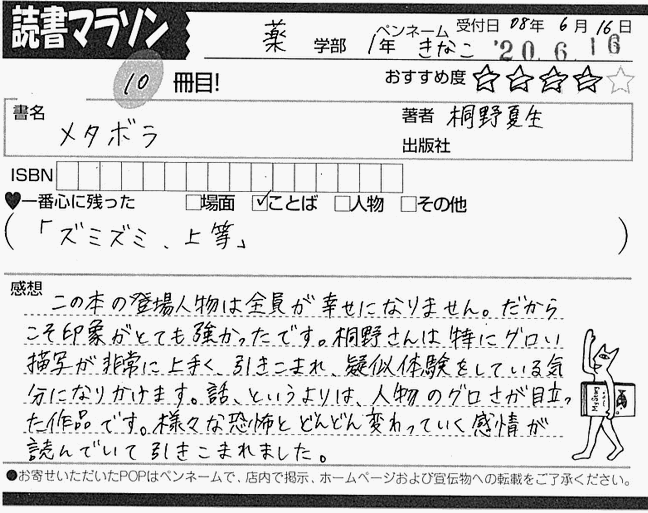 読書マラソン
薬 学部 1年 ペンネーム きなこ 受付日 08年 6月 16日
'20.6.16
10 冊目!
おすすめ度 ★★★★☆
書名 メタボラ
著者 桐野夏生
出版社
ISBN
♥一番心に残った □場面 ☑ことば □人物 □その他
(「ズミズミ、上等」)
感想
この本の登場人物は全員が幸せになりません。だから
こそ印象がとても強かったです。桐野さんは特にグロい
描写が非常に上手く、引きこまれ、疑似体験をしている気
分になりかけます。話、というよりは、人物のグロさが目立っ
た作品です。様々な恐怖とどんどん変わっていく感情が
読んでいて引きこまれました。
●お寄せいただいたPOPはペンネームで、店内で掲示、ホームページおよび宣伝物への転載をご了承ください。